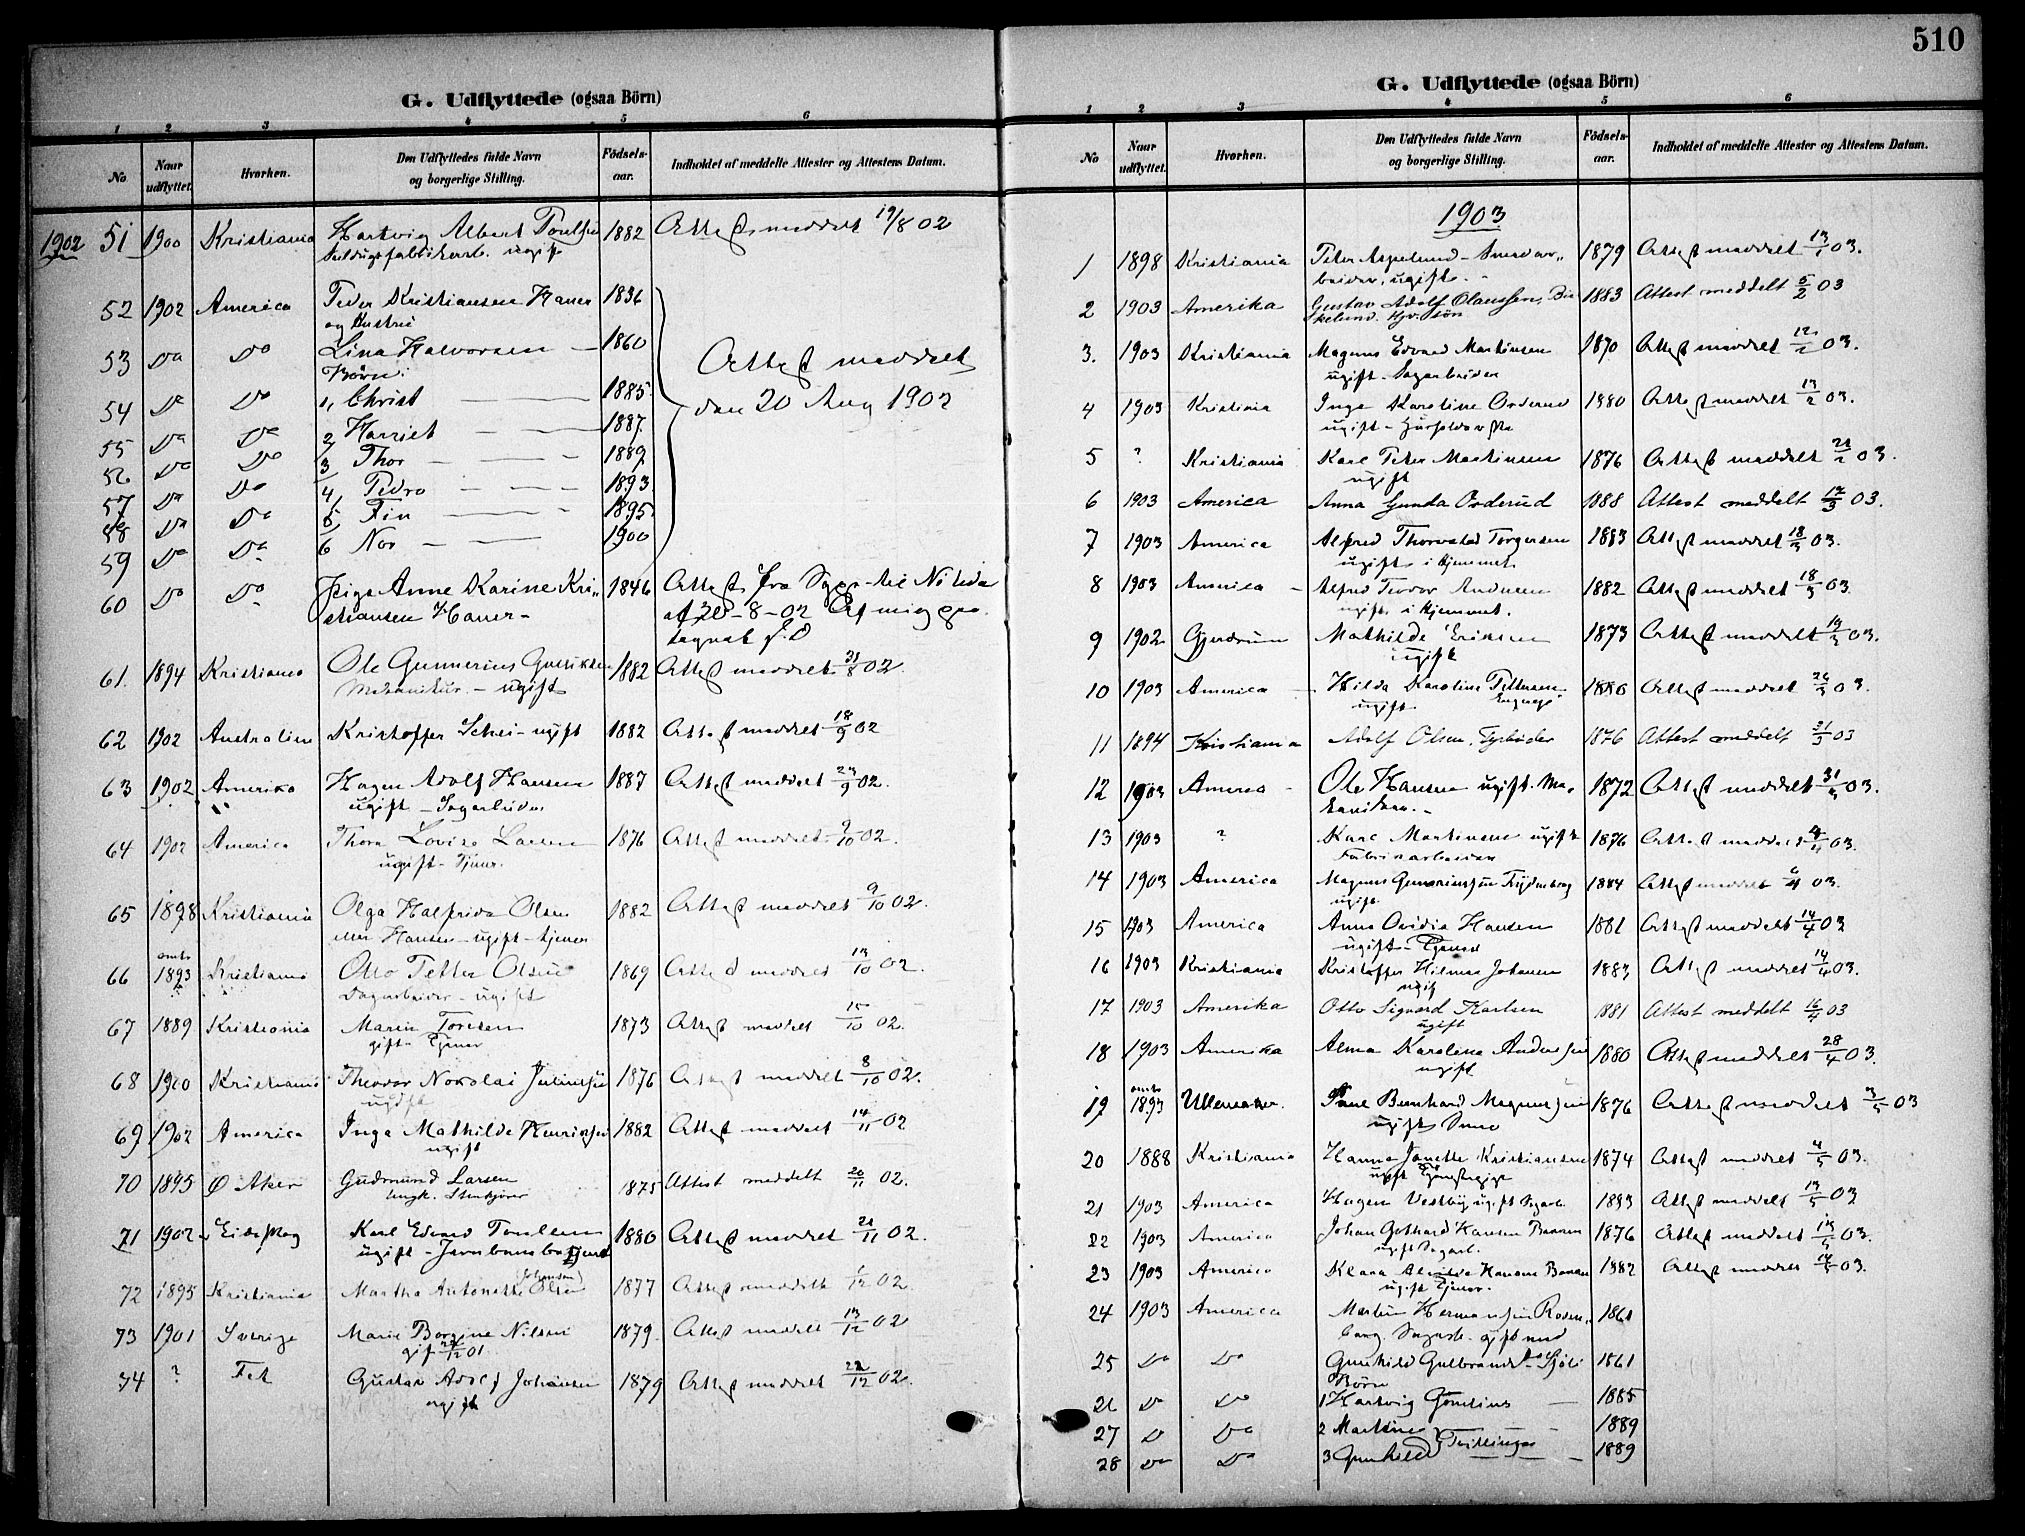 510
G. Udflyttede (ogsaa Börn)
1 2 3 4 5 6
No Naar udflyttet. Hvorhen. Den Udflyttedes fulde Navn og borgerlige Stilling. Födsels-aar. Indholdet af meddelte Attester og Attestens Datum.
1902 51 1900 Kristiania Hartvig Albert 1882 Attest meddelt 19/8 02
ugift
52 1902 America Peder Kristiansen Hauer 1836
og Hustru
53 Do Do Lina Halvorsen — 1860 Attest meddelt
Börn:
54 Do Do 1, Christ — 1885 den 20 Aug 1902
55 Do Do 2, Harriet — 1887
56 Do Do 3, Thor — 1889
57 Do Do 4, Pedro — 1893
58 Do Do 5, Fin — 1895
59 Do Do 6 Nor — 1900
60 Do Do Pige Anne Karine Kri- 1846 Attest fra
stiansen Hauer - 20-8-02
61. 1894 Kristiania Ole Gunnerius 1882 Attest meddelt 31/8 02
Mekaniker. - ugift
62 1902 Australien Kristoffer Schei - ugift 1882 Attest meddelt 18/9 02
63 1902 Amerika Hagen Adolf Hansen 1887 Attest meddelt 23/9 02.
ugift - Sagarbeider
64 1902 America Thora Lovise Larsen 1876 Attest meddelt 9/10 02.
ugift - Tjener.
65 1898 Kristiania Olga Halfrida Olsen 1882 Attest meddelt 9/10 02.
eller Hansen - ugift - tjener
66 omtr 1893 Kristiania Otto Petter Olsen 1869 Attest meddelt 13/10 02.
Dagarbeider - ugift
67 1889 Kristiania Maren Toresen 1873 Attest meddelt 15/10 02.
gift - Tjener
68 1900 Kristiania Theodor Nokolai Juliussen 1876 Attest meddelt 8/10 02.
ugift
69 1902 America Inga Mathilde Henriksen 1882 Attest meddelt 14/11 02
ugift
70 1895 Ø Aker Gudmund Larsen 1875 Attest meddelt 20/11 02.
Ungk.
71 1902 Eidskog Karl Edvard 1880 Attest meddelt 21/11 02.
ugift -
72 1895 Kristiania Martha Antonette Olsen (Johansen) 1877 Attest meddelt 1/12 02
73 1901 Sverige Marie Borgine Nilsen 1879. Attest meddelt 13/12 02
gift 01
74 ? Fet Gustav Adolf Johansen 1879 Attest meddelt 22/12 02.
ugift
G. Udflyttede (ogsaa Börn)
1 2 3 4 5 6
No Naar udflyttet. Hvorhen. Den Udflyttedes fulde Navn og borgerlige Stilling. Födsels-aar. Indholdet af meddelte Attester og Attestens Datum.
1903
1 1898 Kristiania Peter Aspelund - Smedar- 1879 Attest meddelt 13/1 03.
beider, ugift. -
2 1903 Amerika Gustav Adolf Olaussen, 1883 Attest meddelt 5/2 03
3. 1903 Kristiania Magnus Edvard Martinsen 1870 Attest meddelt 12/2 03.
ugift - Sagarbeider
4 1903 Kristinia Inga Karoline Orderud 1880 Attest meddelt 13/2 03.
ugift -
5 ? Kristiania Karl Peter Martinsen 1876 Attest meddelt 21/2 03.
ugift
6 1903 America Anna Gunda Orderud 1888 Attest meddelt 12/3 03.
7 1903 America Alfred Thorvald Torgersen 1883 Attest meddelt 18/3 03.
ugift i Hjemmet
8 1903 America - Alfred Teodor Andersen 1882 Attest meddelt 18/3 03.
ugift i Hjemmet.
9 1902 Gjerdrum Mathilde Eriksen 1873 Attest meddelt 19/3 03.
ugift
10 1903 America - Hilda Karoline Pettersen 1886 Attest meddelt 26/3 03.
ugift.
11 1894 Kristiania Adolf Olsen, 1876 Attest meddelt 31/3 03
12 1903 America - Ole Hansen ugift. Me- 1872 Attest meddelt 31/3 03.
kaniker. -
13 1903 ? Karl Martinsen ugift 1876 Attest meddelt 03.
Fabrikarbeider
14 1903 America Magnus 1884 Attest meddelt 6/4 03.
ugift.
15 1903 America Anna Ovidia Hansen 1881 Attest meddelt 14/4 03
ugift - Tjener
16 1903 Kristiania Kristoffer Hilmar Johansen 1883 Attest meddelt 14/4 03.
ugif
17 1903 Amerika Otto Sigvard Karlsen 1881 Attest meddelt 16/4 03
ugift
18 1903 Amerika Alma Karoline Andersen 1880 Attest meddelt 28/4 03.
ugift
19 omtr 1893 Ullensaker. Paul Bernhard Magnussen 1876 Attest meddelt 3/5 03
ugift Smed
20 1888 Kristiania Hanna Janette Kristiansen 1874 Attest meddelt 4/5 03.
ugift Tjenestepige
21 1903 America Hagen Vestby ugift Sagarb. 1883 Attest meddelt 13/5 03
22 1903 America Johan Gotthard Hansen 1876 Attest meddelt 13/5 03.
ugift Sagarb.
23 1903 America Klara Hansen 1882 Attest meddelt 14/5 03.
ugift Tjener.
24 1903 America Martin Hermansen Roden- 1861
berg. Sagarb. gift med
25 Do Do Gunhild Gulbrandsdr Sjöli 1861
Börn
26 Do Do 1 Hartvig — 1885
27 Do Do 2 Martinus - 1889
Tvillinger
28 Do Do 3 Gunhild — 1889